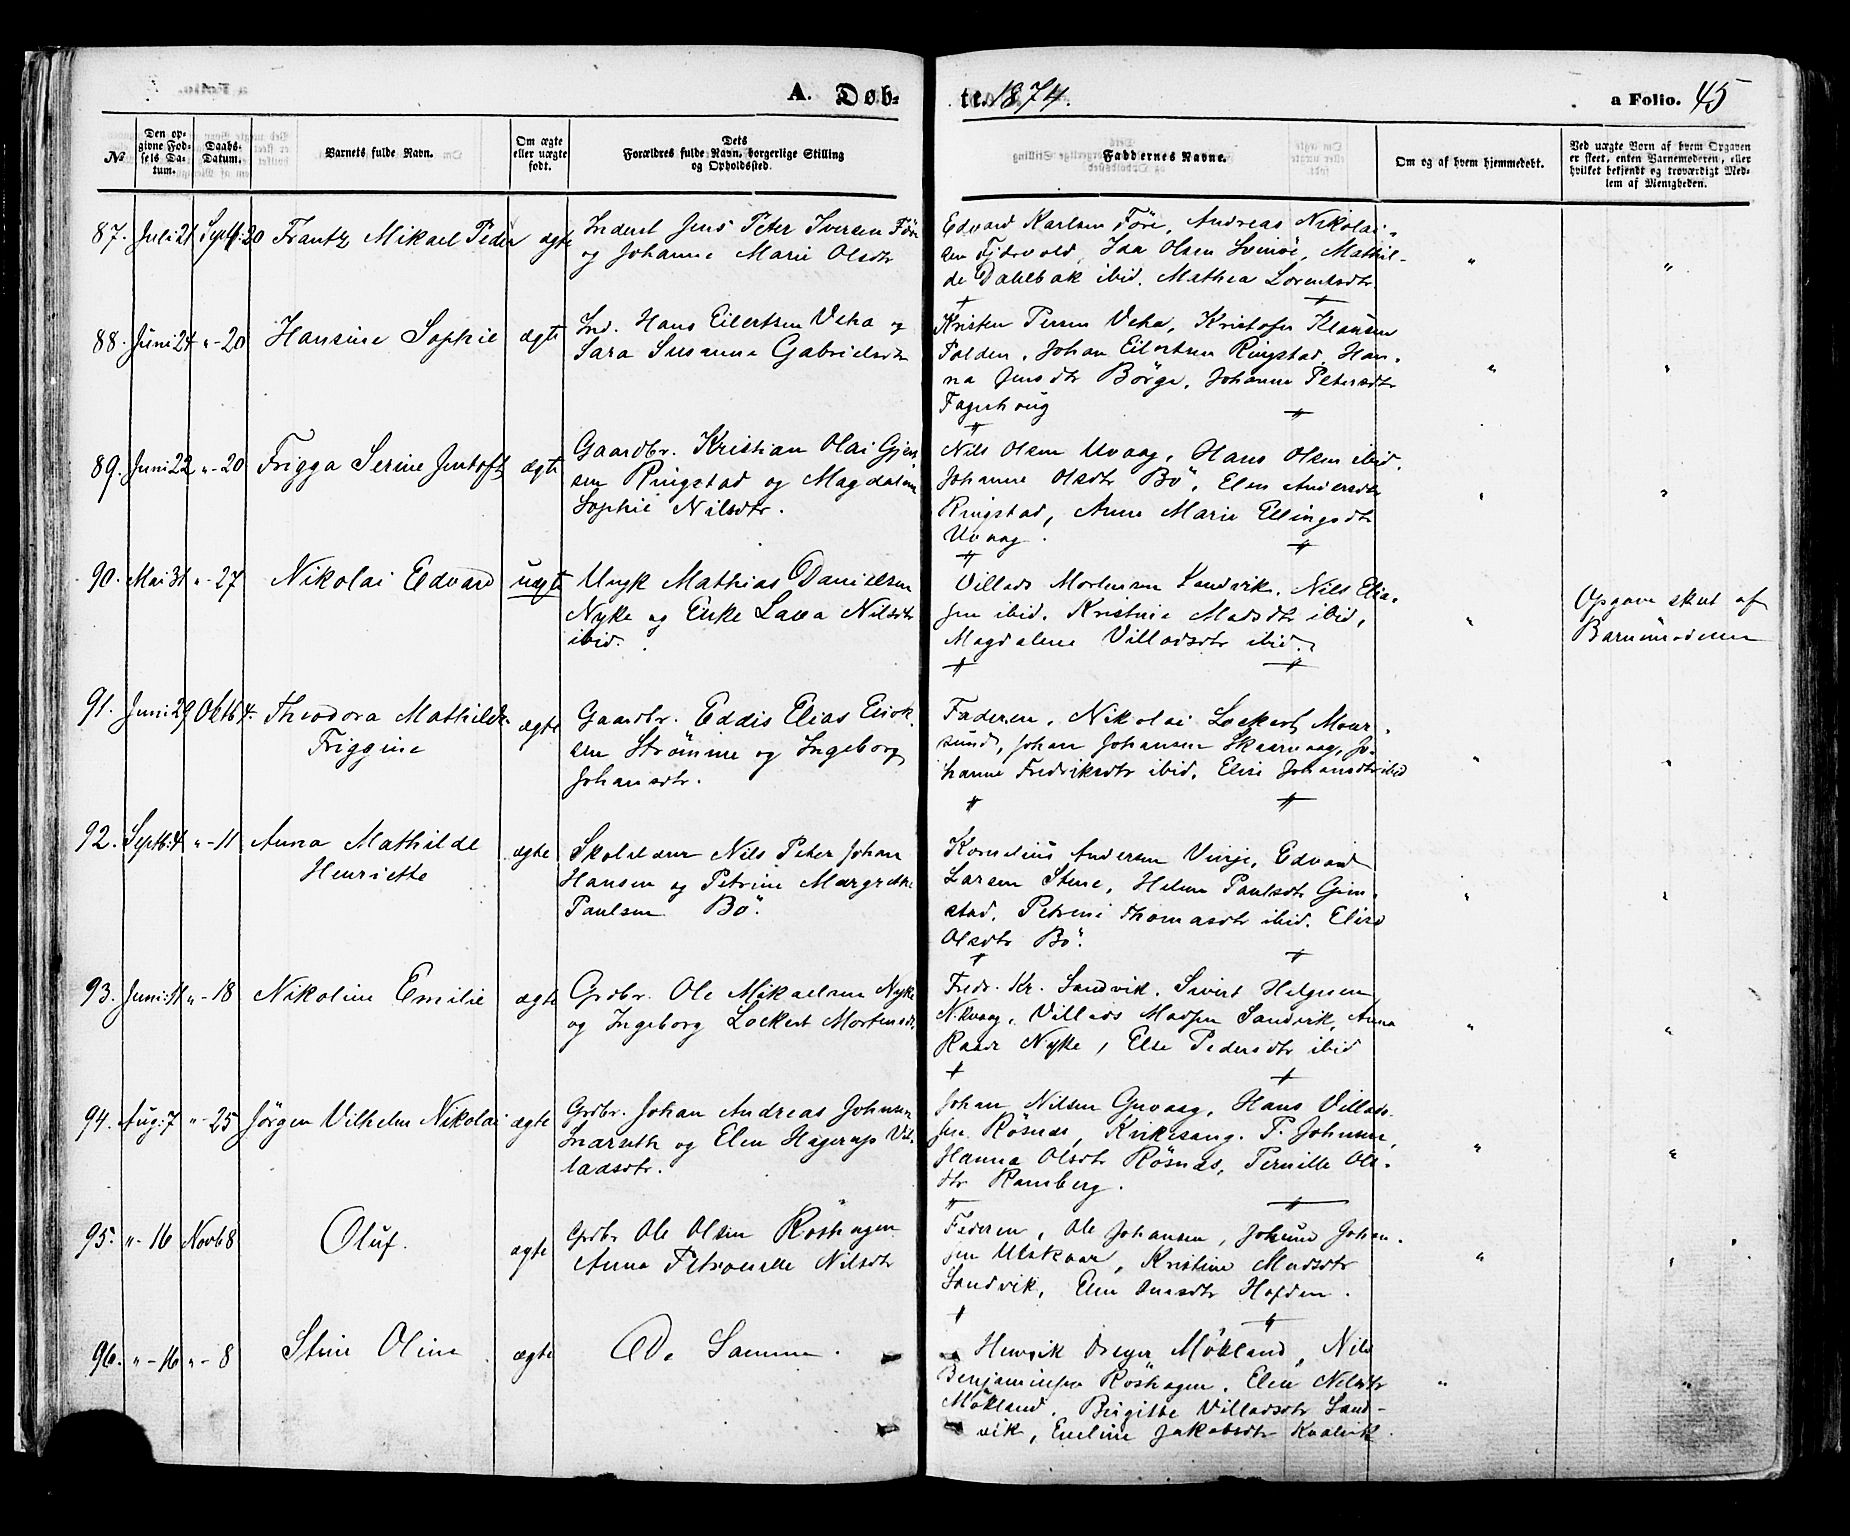 A. Døb-
te. 1874.
a Folio. 45
№
Den op-
givne Fød-
sels Da-
tum.
Daabs-
Datum.
Barnets fulde Navn.
Om ægte
eller uægte
født.
Dets
Forældres fulde Navn, borgerlige Stilling
og Opholdssted.
Faddernes Navne.
Om og af hvem hjemmedøbt.
Ved uægte Børn af hvem Opgaven
er skeet, enten Barnemoderen, eller
hvilket bekjendt og troværdigt Med-
lem af Menigheden.
87. Juli 21 Septb: 20 Frantz Mikael Peder ægte
Inderst Jens Peter Iversen Före
og Johanne Marie Olsdtr
Edvard Karlsen Före, Andreas Nikolai-
sen Fjærvold, Ida Olsen Svinöe, Mathil-
de Dahlbak ibid. Mathea Lorentsdtr
" "
88. Juni 24 "-20 Hansine Sophie ægte
Ind. Hans Eilertsen Veha og
Sara Susanna Gabrielsdtr
Kristen Persen Veha, Kristofer Klausen
Tolden, Johan Eilertsen Ringstad, Han-
na Jensdtr Börge, Johanne Petersdtr
Fagerhoug
" "
89. Juni 22 "-20 Frigga Serine Jentoft ægte
Gaardbr. Kristian Olai Gjer-
sen Ringstad og Magdalene
Sophie Nilsdtr.
Nils Olsen Uvaag, Hans Olsen ibid.
Johanne Olsdtr Bö, Elen Andersdtr
Ringstad, Anne Marie Ellingsdtr
Uvaag.
90. Mai 31 "-27 Nikolai Edvard uægte
Ungk Mathias Danielsen
Nyke og Enke Lava Nilsdtr
ibid.
Villads Mortensen Sandvik, Nils Elia-
sen ibid. Kristine Madsdtr ibid,
Magdalene Villadsdtr ibid.
"
Opgave skeet af
Barnemoderen
91. Juni 29 Oktb 4. Theodora Mathilde
Friggine
ægte
Gaardbr. Eddis Elias Erik-
sen Strömme og Ingeborg
Johansdtr.
Faderen, Nikolai Lockert, Maur-
sund, Johan Johansen Skaarvaag, Jo-
hanne Fredriksdtr ibid, Elise Johansdtr ibid
" "
92. Septb: 4 "-11 Anna Mathilde
Henriette
ægte
Skolelærer Nils Peter Johan
Hansen og Petrine Margrethe
Paulsen Bö.
Kornelius Andersen Vinje, Edvard
Larsen Steine, Helene Paulsdtr Gim-
stad, Petrine Thomasdtr ibid. Elise
Olsdtr Bö.
" "
93. Juni: 11 "-18 Nikoline Emilie ægte
Grdbr. Ole Mikaelsen Nyke
og Ingeborg Lockert Mortensdtr
Fredr. Kr. Sandvik, Sivert Helgesen
Nykvaag, Villads Madsen Sandvik, Anna
Raade Nyke, Else Pedersdtr ibid
" "
94. Aug: 7 "-25 Jörgen Vilhelm Nikolai ægte
Grdbr. Johan Andreas Johnsen
og Elen Hagerup Vil-
ladsdtr.
Johan Nilsen Guvaag, Hans Villad-
sen Rösnæs, Kirkesang. P. Johnsen,
Hanna Olsdtr Rösnæs, Pernille Ols-
dtr Ramberg.
" "
95. "-16 Novb 8 Oluf. ægte
Grdbr Ole Olsen Röshagen
Anna Petronelle Nilsdtr
Faderen, Ole Johansen, Johan-
sen Ulskaar, Kristine Madsdtr
Sandvik, Elen Hofden.
" "
96. "-16 "-8 Stine Oline ægte
De Samme.
Henrik Dreyer Mökland, Nils
Benjaminsen Röshagen, Elen Nelsdtr
Mökland, Birgitte Villadsdtr Sand-
vik, Eveline Jakobsdtr Kvalvik.
" "